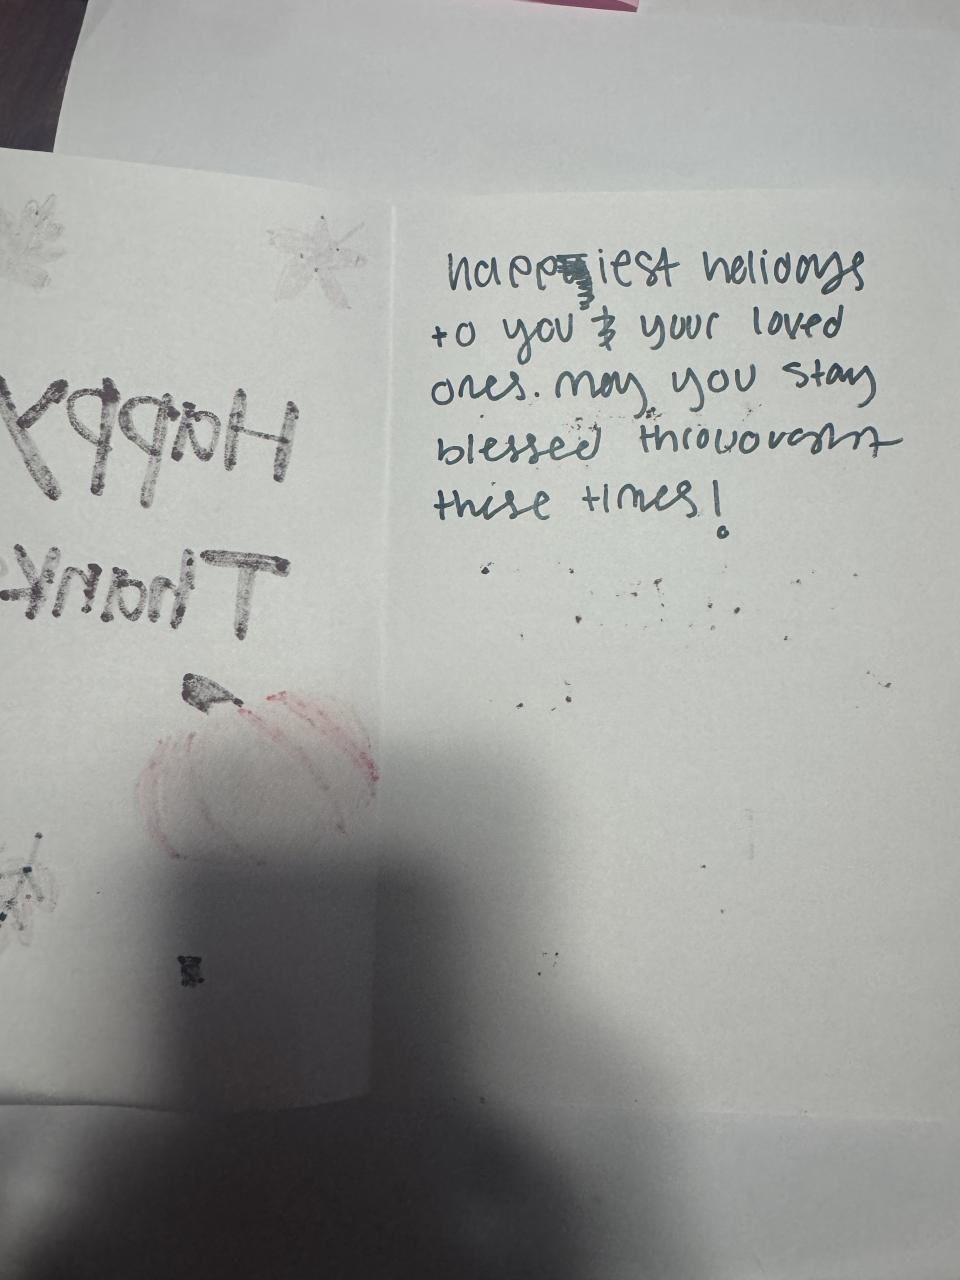 Happy
Thank
happiest holidays
to you & your loved
ones. may you stay
blessed throughout
these times!